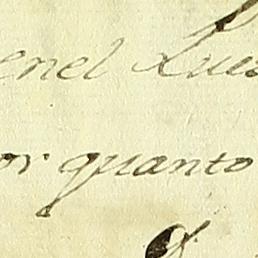 enel Lues
or quanto